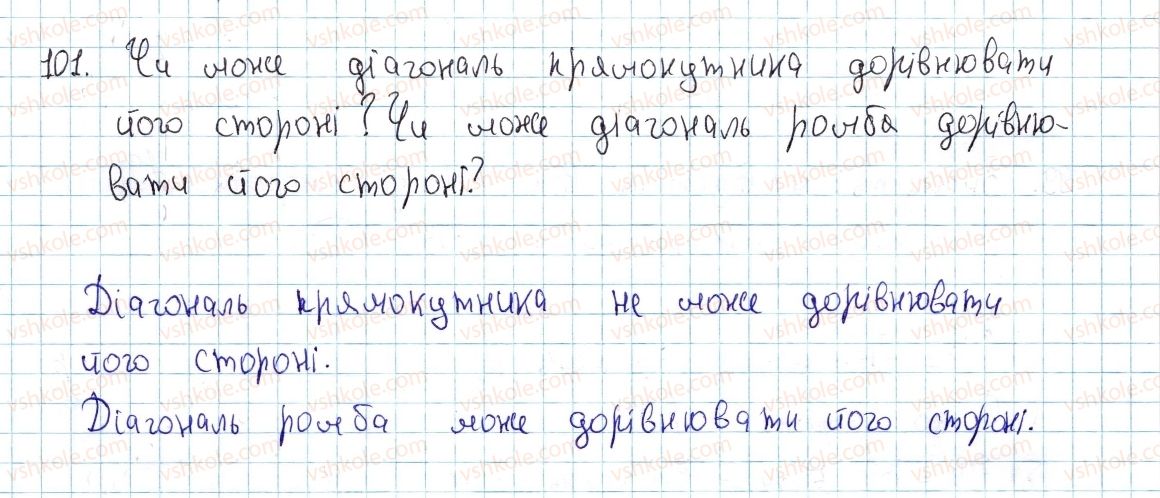 101. Чи може діагональ прямокутника дорівнювати
його стороні? Чи може діагональ ромба дорівню-
вати його стороні?
Діагональ прямокутника не може дорівнювати
його стороні.
Діагональ ромба може дорівнювати його стороні.